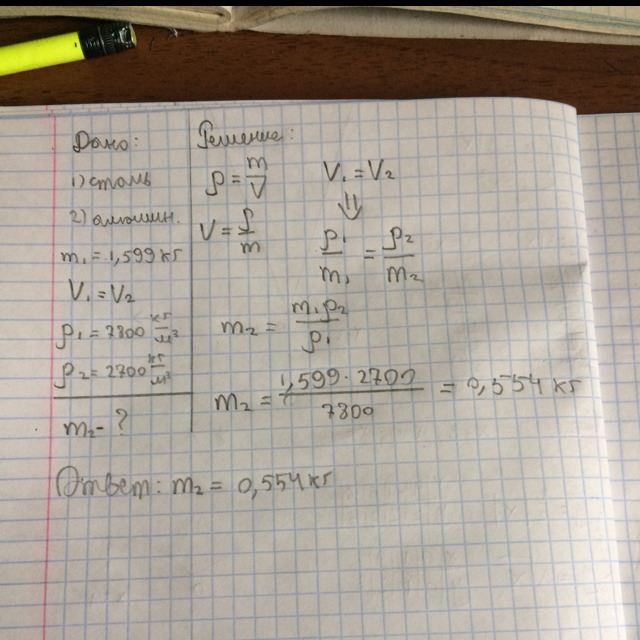 Дано:
1) сталь
2) алюмин.
m₁ = 1,599 кг
V₁ = V₂
ρ₁ = 7800 кг/м³
ρ₂ = 2700 кг/м³
m₂ - ?
Решение:
ρ = m/V
V = ρ/m
V₁ = V₂
⇓
ρ₁/m₁ = ρ₂/m₂
m₂ = m₁ρ₂/ρ₁
m₂ = 1,599 · 2700/7800 = 0,554 кг
Ответ: m₂ = 0,554 кг